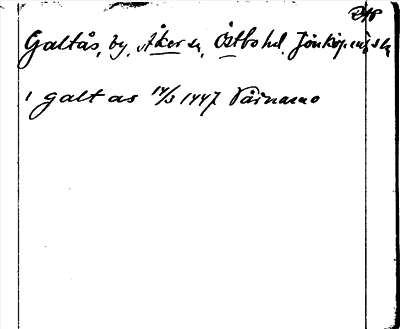 Galtås, by, Åker sn, Östbo hd. Jönköpings l.
i galt as 14/3 1447 Värnamo